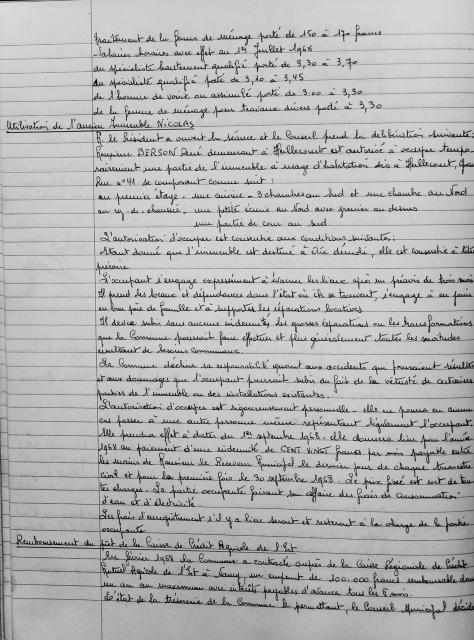 Traitement de la femme de ménage porté de 150 à 170 francs
Salaires horaires avec effet au 1er Juillet 1968
du spécialiste hautement qualifié porté de 3,30 à 3,70
du spécialiste qualifié porté de 3,10 à 3,45
de l'homme de voirie ou assimilé porté de 3.00 à 3,30
de la femme de ménage pour travaux divers porté à 3,30
Utilisation de l'ancien Immeuble NICOLAS
M. le Président a ouvert la séance et le Conseil prend la délibération suivante :
Monsieur BERSON René demeurant à Hellecourt est autorisé à occuper tempo-
rairement une partie de l'immeuble à usage d'habitation sis à Hellecourt,
Rue n°41 se composant comme suit :
au premier étage - une cuisine - 3 chambres au Sud et une chambre au Nord
au rez-de-chaussée - une petite écurie au Nord avec grenier au dessus
une partie de cour au sud
L'autorisation d'occuper est consentie aux conditions suivantes :
Etant donné que l'immeuble est destiné à être démoli, elle est consentie à titre
précaire
L'occupant s'engage expressément à évacuer les lieux après un préavis de trois mois
Il prend les locaux et dépendances dans l'état où ils se trouvent, s'engage à en jouir
en bon père de famille et à supporter les réparations locatives.
Il devra subir sans aucune indemnité les grosses réparations ou les transformations
que la Commune pourrait faire effectuer et plus généralement toutes les servitudes
résultant de besoins communaux.
La Commune décline sa responsabilité quant aux accidents qui pourraient résulter
et aux dommages que l'occupant pourrait subir du fait de la vétusté de certaines
parties de l'immeuble ou des installations existantes.
L'autorisation d'occuper est rigoureusement personnelle - elle ne pourra en aucun
cas passer à une autre personne même représentant légalement l'occupant.
Elle prendra effet à dater du 1er septembre 1968 - elle donnera lieu pour l'année
1968 au paiement d'une indemnité de CENT VINGT francs par mois payable entre
les mains de Monsieur le Receveur Municipal le dernier jour de chaque trimestre
civil et pour la première fois le 30 septembre 1968. Le prix fixé est net de tou-
tes charges. La partie occupante faisant son affaire des frais de consommation
d'eau et d'électricité.
Les frais d'enregistrement s'il y a lieu seront et resteront à la charge de la partie
occupante
Remboursement du prêt de la Caisse de Crédit Agricole de l'Est
En février 1968 la Commune a contracté auprès de la Caisse Régionale de Crédit
Mutuel Agricole de l'Est à Nancy, un emprunt de 100.000 francs remboursable dans
un an au maximum avec intérêts payables d'avance tous les 6 mois.
L'état de la trésorerie de la Commune le permettant, le Conseil Municipal décide